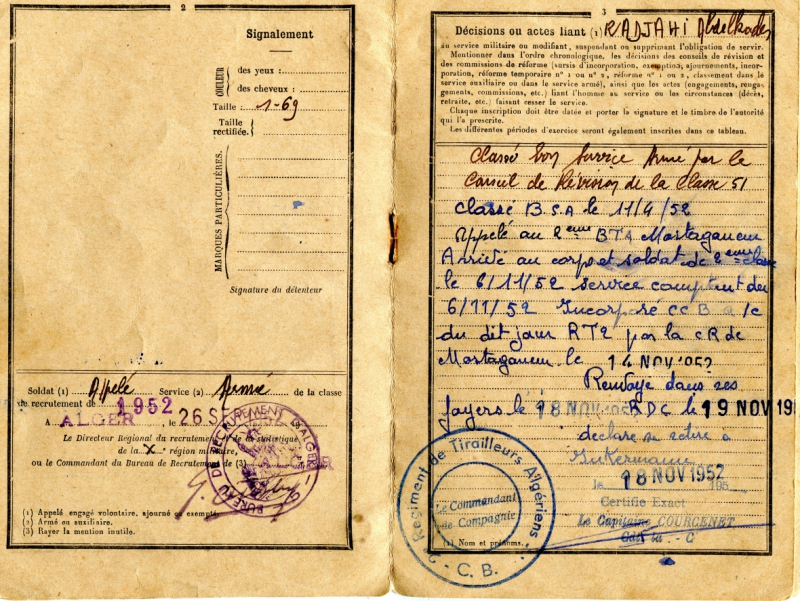 2
Signalement
COULEUR
des yeux :
des cheveux :
Taille : 1-69
Taille
rectifiée.
MARQUES PARTICULIÈRES.
Signature du détenteur
Soldat (1) Appelé Service (2) Armé de la classe
de recrutement de 1952
A ALGER, le 26 SE
Le Directeur Régional du recrutement et de la statistique
de la X° région militaire,
ou le Commandant du Bureau de Recrutement de (3)
BUREAU DE RECRUTEMENT D'ALGER
(1) Appelé engagé volontaire, ajourné ou exempté.
(2) Armé ou auxiliaire.
(3) Rayer la mention inutile.
3
Décisions ou actes liant (1) RADJAHI Abdelkader
au service militaire ou modifiant, suspendant ou supprimant l'obligation de servir.
Mentionner dans l'ordre chronologique, les décisions des conseils de révision et
des commissions de réforme (sursis d'incorporation, exemption, ajournements, incor-
poration, réforme temporaire n° 1 ou n° 2, réforme n° 1 ou 2, classement dans le
service auxiliaire ou dans le service armé), ainsi que les actes (engagements, rengagements,
commissions, etc.) liant l'homme au service ou les circonstances (décès,
retraite, etc.) faisant cesser le service.
Chaque inscription doit être datée et porter la signature et le timbre de l'autorité
qui l'a prescrite.
Les différentes périodes d'exercice seront également inscrites dans ce tableau.
Classé bon service Armé par le
Conseil de Révision de la Classe 51
Classé B.S.A le 11/4/52
Appelé au 2eme BTA Mostaganem
Arrivé au corps et soldat de 2eme classe
le 6/11/52 service comptant du
6/11/52 Incorporé CCB a/c
du dit jour RT2 par la CR de
Mostaganem le 14 NOV 1952
Renvoyé dans ses
foyers le 18 NOV RDC le 19 NOV 19
déclare se retirer à
Inkermann
le 18 NOV 1952 195
Certifié Exact
Le Capitaine COURGENET
Cdt la - C
2e Régiment de Tirailleurs Algériens
Le Commandant
de Compagnie
- C.B. -
(1) Nom et prénoms.